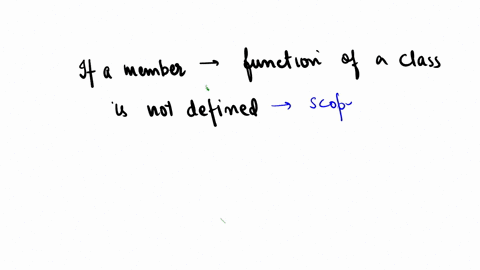 If a member → function of a class
is not defined → scop